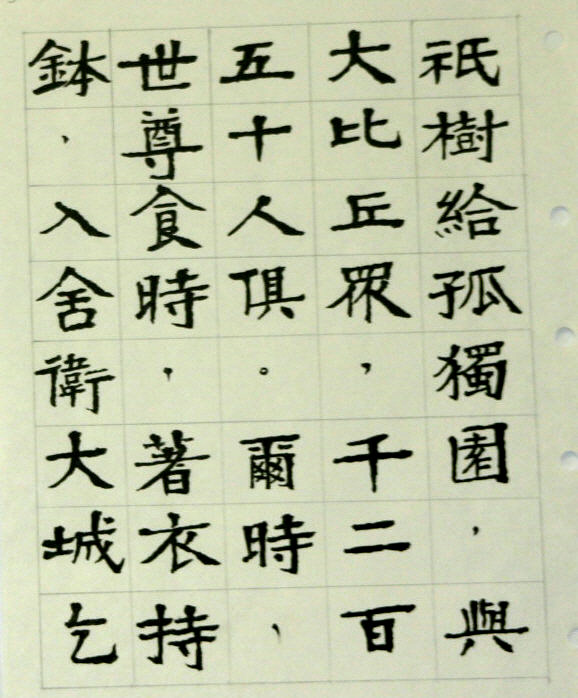 祇樹給孤獨園，與
大比丘眾，千二百
五十人俱。爾時，
世尊食時，著衣持
鉢，入舍衛大城乞